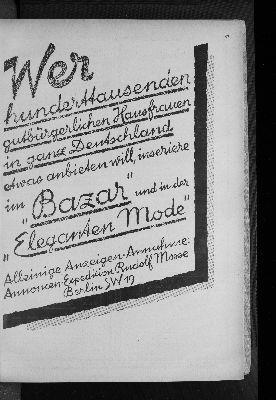 Wer
hunderttausenden
gutbürgerlichen Hausfrauen
in ganz Deutschland
etwas anbieten will, inseriere
im "Bazar" und in der
"Eleganten Mode"
Alleinige Anzeigen-Annahme:
Annoncen-Expedition Rudolf Mosse
Berlin SW 19